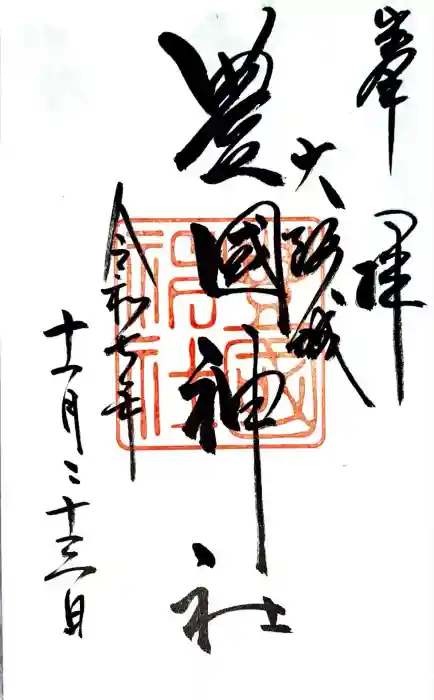 奉拝
大阪城
豊國神社
令和七年
十一月二十三日